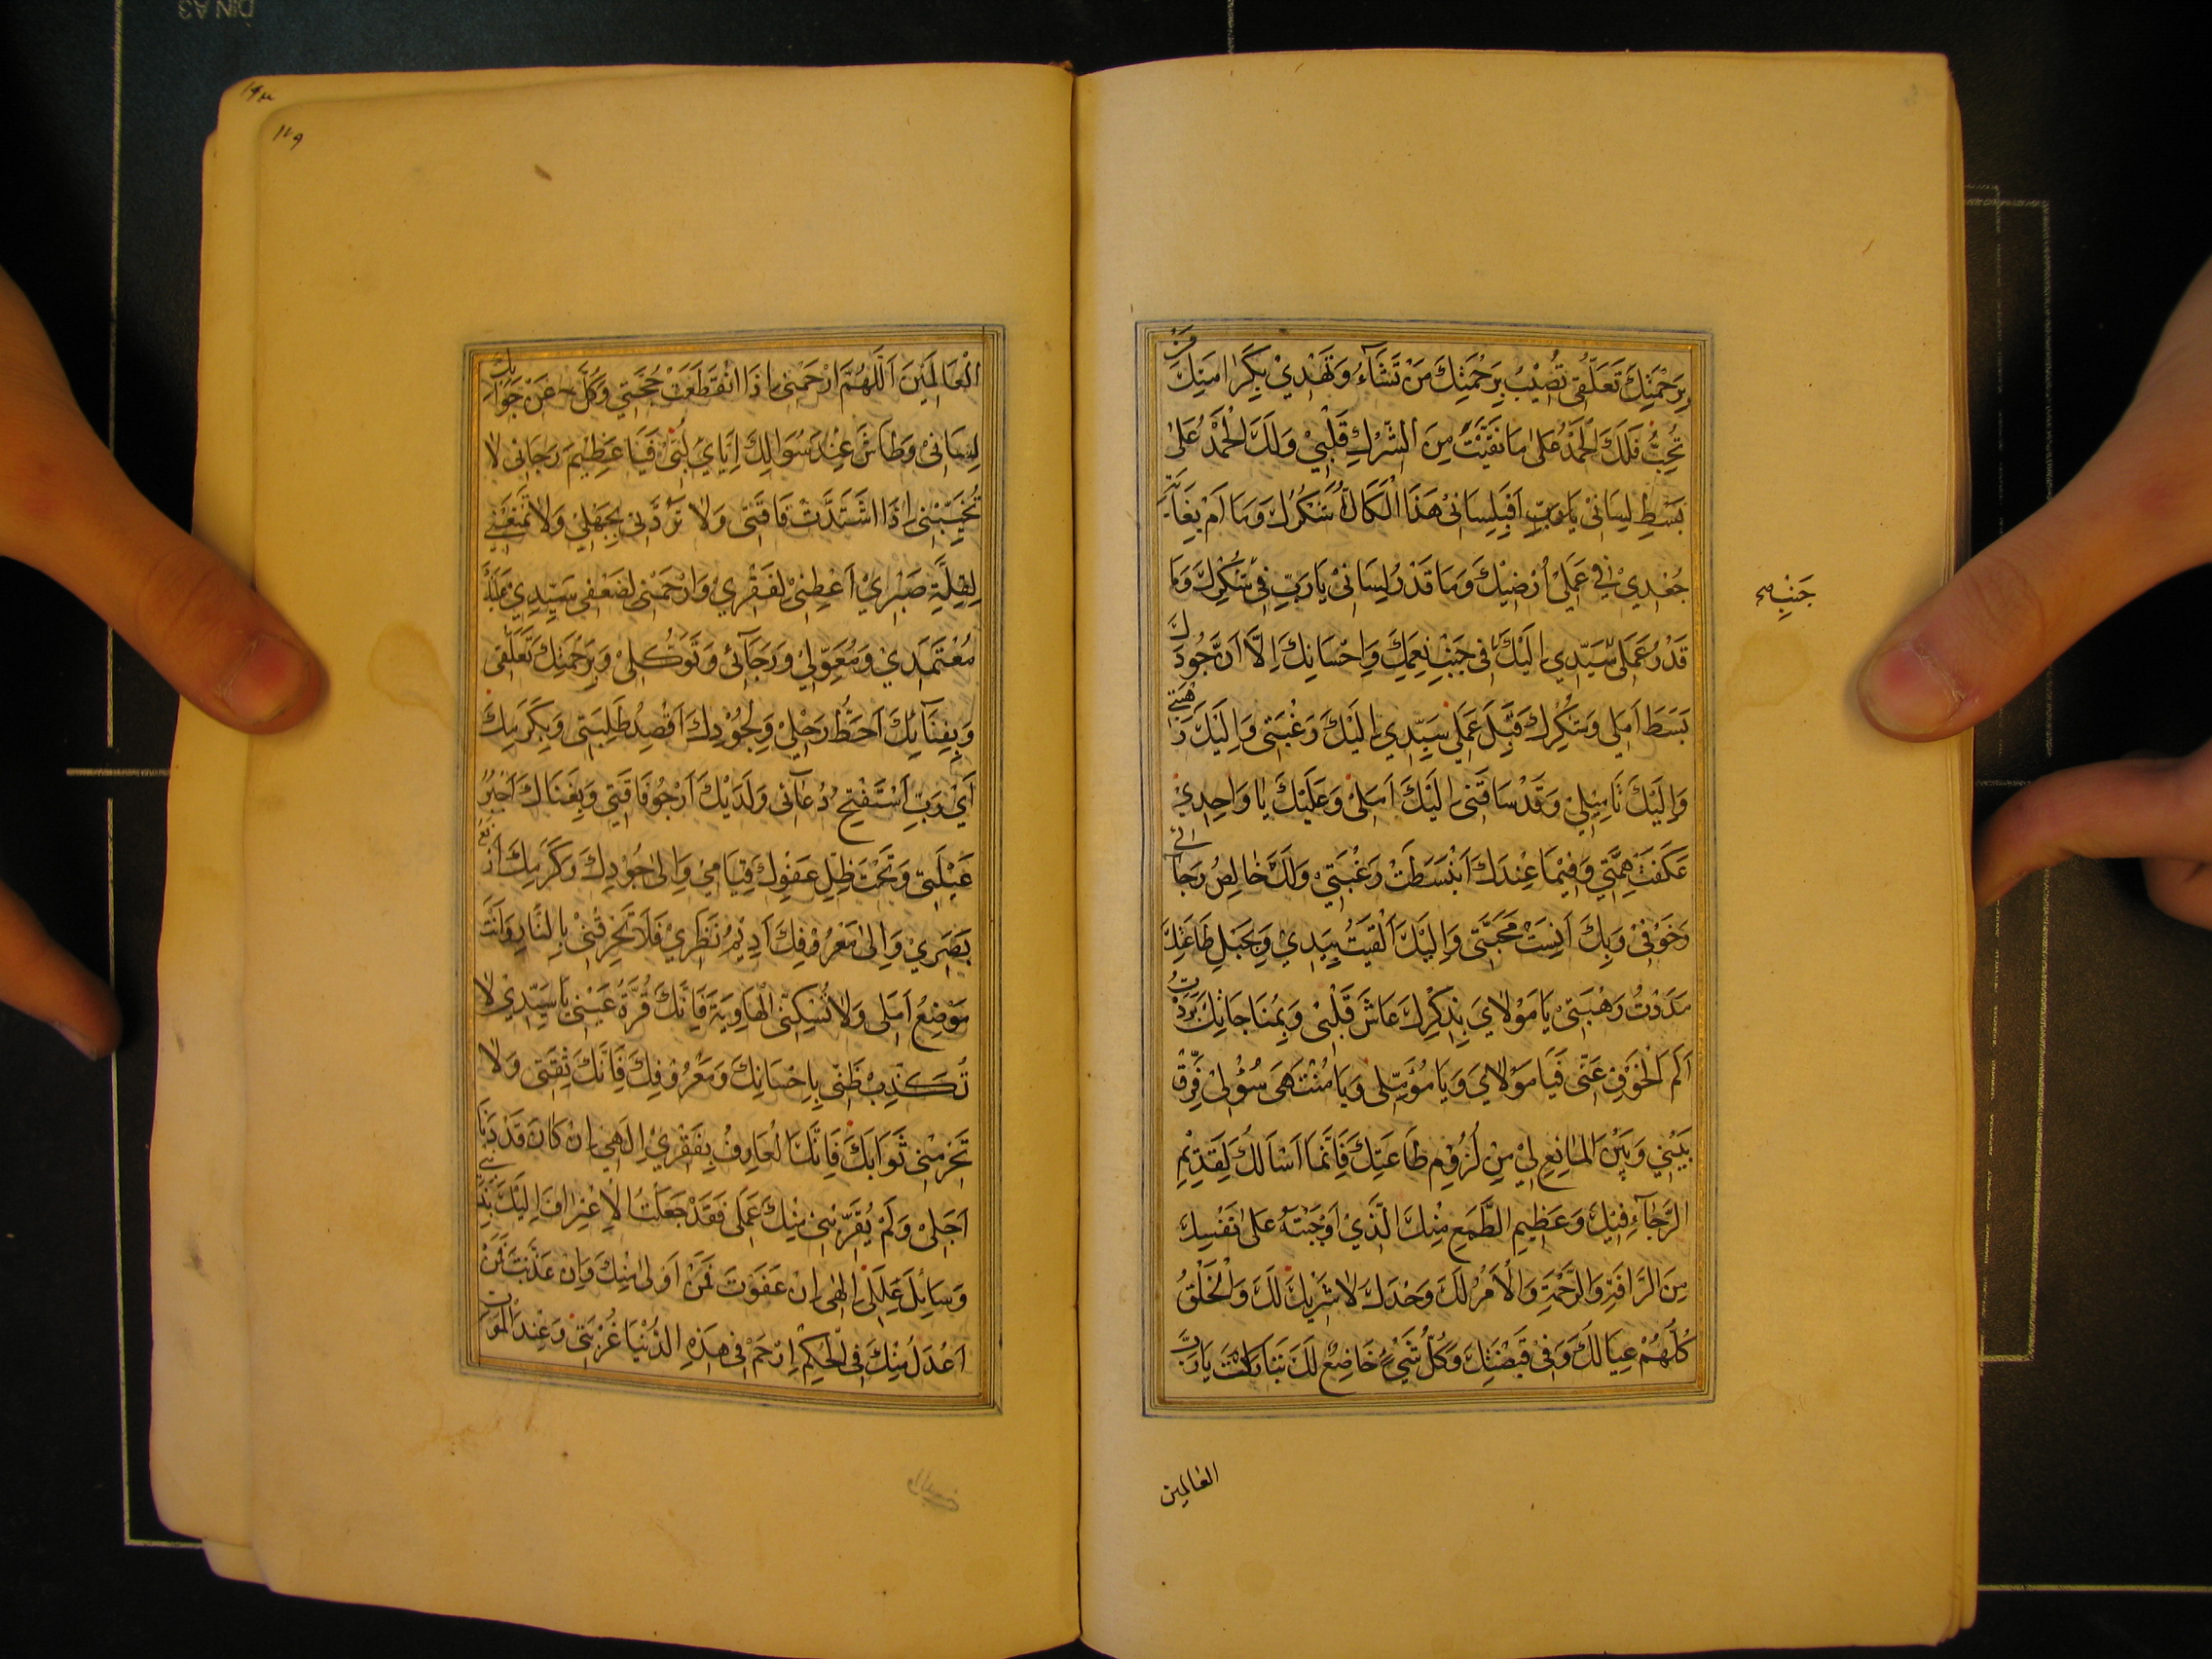 وَبِرَحْمَتِكَ تَعَلُّقِي تُصِيْبُ بِرَحْمَتِكَ مَنْ تَشَآءُ وَتَهْدِيْ بِكَرَامَتِكَ مَنْ
تُحِبُّ فَلَكَ الْحَمْدُ عَلٰى مَا نَقَّيْتَ مِنَ الشِّرْكِ قَلْبِيْ وَلَكَ الْحَمْدُ عَلٰى
بَسْطِ لِسَانِيْ يَا رَبِّ اَفَبِلِسَانِيْ هٰذَا الْكَالِّ اَشْكُرُكَ وَمَا اَمْ بِغَايَةِ
جُهْدِيْ فِي عَمَلِيْ اُرْضِيْكَ وَمَا قَدْرُ لِسَانِيْ يَا رَبِّ فِيْ شُكْرِكَ وَمَا
جَنْبِ صح
قَدْرُ عَمَلِي سَيِّدِي اِلَيْكَ فِي جَنْبِ نِعَمِكَ وَاِحْسَانِكَ اِلَّا اَنَّ جُودَكَ
بَسَطَ اَمَلِي وَشُكْرِكَ قَبِّلَ عَمَلِي سَيِّدِي اِلَيْكَ رَغْبَتِي وَاِلَيْكَ رَهْبَتِي
وَاِلَيْكَ تَامِيْلِيْ وَقَدْ سَاقَنِي اِلَيْكَ اَمَلِيْ وَعَلَيْكَ يَا وَاحِدِيْ
عَكَفَتْ هِمَّتِي وَفِيْمَا عِنْدَكَ اَنْبَسَطَتْ رَغْبَتِيْ وَلَكَ خَالِصُ رَجَائِي
وَخَوْفِيْ وَبِكَ اَنِسَتْ مَحَبَّتِي وَاِلَيْكَ اَلْقَيْتُ بِيَدِيْ وَبِحَبْلِ طَاعَتِكَ
مَدَدْتُ رَهْبَتِيْ يَا مَوْلَايَ بِذِكْرِكَ عَاشَ قَلْبِيْ وَبِمُنَاجَاتِكَ بَرَّدْتُ
اَلَمَ الْخَوْفِ عَنِّي فَيَا مَوْلَايَ وَيَا مُؤَمَّلِي وَيَا مُنْتَهَى سُؤْلِيْ فَرِّقْ
بَيْنِي وَبَيْنَ الْمَانِعِ لِيْ مِنْ لُزُوْمِ طَاعَتِكَ فَاِنَّمَا اَسْاَلُكَ لِقَدِيْمِ
الرَّجَآءِ فِيْكَ وَعَظِيْمِ الطَّمَعِ مِنْكَ الَّذِيْ اَوْجَبْتَهُ عَلٰى نَفْسِكَ
مِنَ الرَّاْفَةِ وَالرَّحْمَةِ وَالْاَمْرُ لَكَ وَحْدَكَ لَا شَرِيْكَ لَكَ وَالْخَلْقُ
كُلُّهُمْ عِيَالُكَ وَفِيْ قَبْضَتِكَ وَكُلُّ شَيْءٍ خَاضِعٌ لَكَ تَبَارَكْتَ يَا رَبَّ
العالمين
الْعَالَمِيْنَ اَللّٰهُمَّ ارْحَمْنِي اِذَا انْقَطَعَتْ حُجَّتِي وَكَلَّ عَنْ جَوَابِكَ
لِسَانِيْ وَطَاشَ عِنْدَ سُؤَالِكَ اِيَّايَ لُبِّيْ فَيَا عَظِيْمَ رَجَائِي لَا
تُخَيِّبْنِي اِذَا اشْتَدَّتْ فَاقَتِي وَلَا تَرُدَّنِيْ لِجَهْلِيْ وَلَا تَمْنَعْنِي
لِقِلَّةِ صَبْرِيْ اَعْطِنِيْ لِفَقْرِيْ وَارْحَمْنِي لِضَعْفِي سَيِّدِيْ عَلَيْكَ
مُعْتَمَدِيْ وَمُعَوَّلِيْ وَرَجَآئِي وَتَوَكُّلِي وَبِرَحْمَتِكَ تَعَلُّقِي
وَبِفِنَآئِكَ اَحُطُّ رَحْلِيْ وَبِجُوْدِكَ اَقْصِدُ طَلِبَتِي وَبِكَرَمِكَ
اَيْ رَبِّ اَسْتَفْتِحُ دُعَائِي وَلَدَيْكَ اَرْجُو فَاقَتِي وَبِغِنَاكَ اَجْبُرُ
عَيْلَتِي وَتَحْتَ ظِلِّ عَفْوِكَ قِيَامِيْ وَاِلٰى جُوْدِكَ وَكَرَمِكَ اَرْفَعُ
بَصَرِيْ وَاِلٰى مَعْرُوْفِكَ اُدِيْمُ نَظَرِيْ فَلَا تُحْرِقْنِيْ بِالنَّارِ وَاَنْتَ
مَوْضِعُ اَمَلِي وَلَا تُسْكِنِّي الْهَاوِيَةَ فَاِنَّكَ قُرَّةُ عَيْنِيْ يَا سَيِّدِيْ لَا
تُكَذِّبْ ظَنِّي بِاِحْسَانِكَ وَمَعْرُوْفِكَ فَاِنَّكَ ثِقَتِي وَلَا
تَحْرِمْنِي ثَوَابَكَ فَاِنَّكَ الْعَارِفُ بِفَقْرِيْ اِلٰهِي اِنْ كَانَ قَدْ دَنَا
اَجَلِيْ وَلَمْ يُقَرِّبْنِي مِنْكَ عَمَلِي فَقَدْ جَعَلْتُ الْاِعْتِرَافَ اِلَيْكَ بِذَنْبِي
وَسَائِلَ عِلَلِي اِلٰهِي اِنْ عَفَوْتَ فَمَنْ اَوْلٰى مِنْكَ وَاِنْ عَذَّبْتَ فَمَنْ
اَعْدَلُ مِنْكَ فِي الْحُكْمِ اِرْحَمْ فِي هٰذِهِ الدُّنْيَا غُرْبَتِيْ وَعِنْدَ الْمَوْتِ